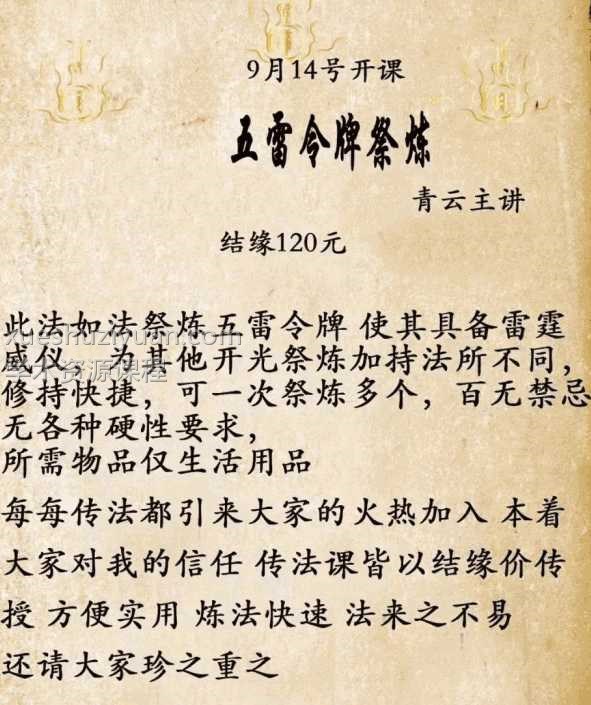 9月14号开课
五雷令牌祭炼
青云主讲
结缘120元
此法如法祭炼五雷令牌 使其具备雷霆
威仪，为其他开光祭炼加持法所不同，
修持快捷，可一次祭炼多个，百无禁忌
无各种硬性要求，
所需物品仅生活用品
每每传法都引来大家的火热加入 本着
大家对我的信任 传法课皆以结缘价传
授 方便实用 炼法快速 法来之不易
还请大家珍之重之
xueshuziyuan.com
学术资源课程